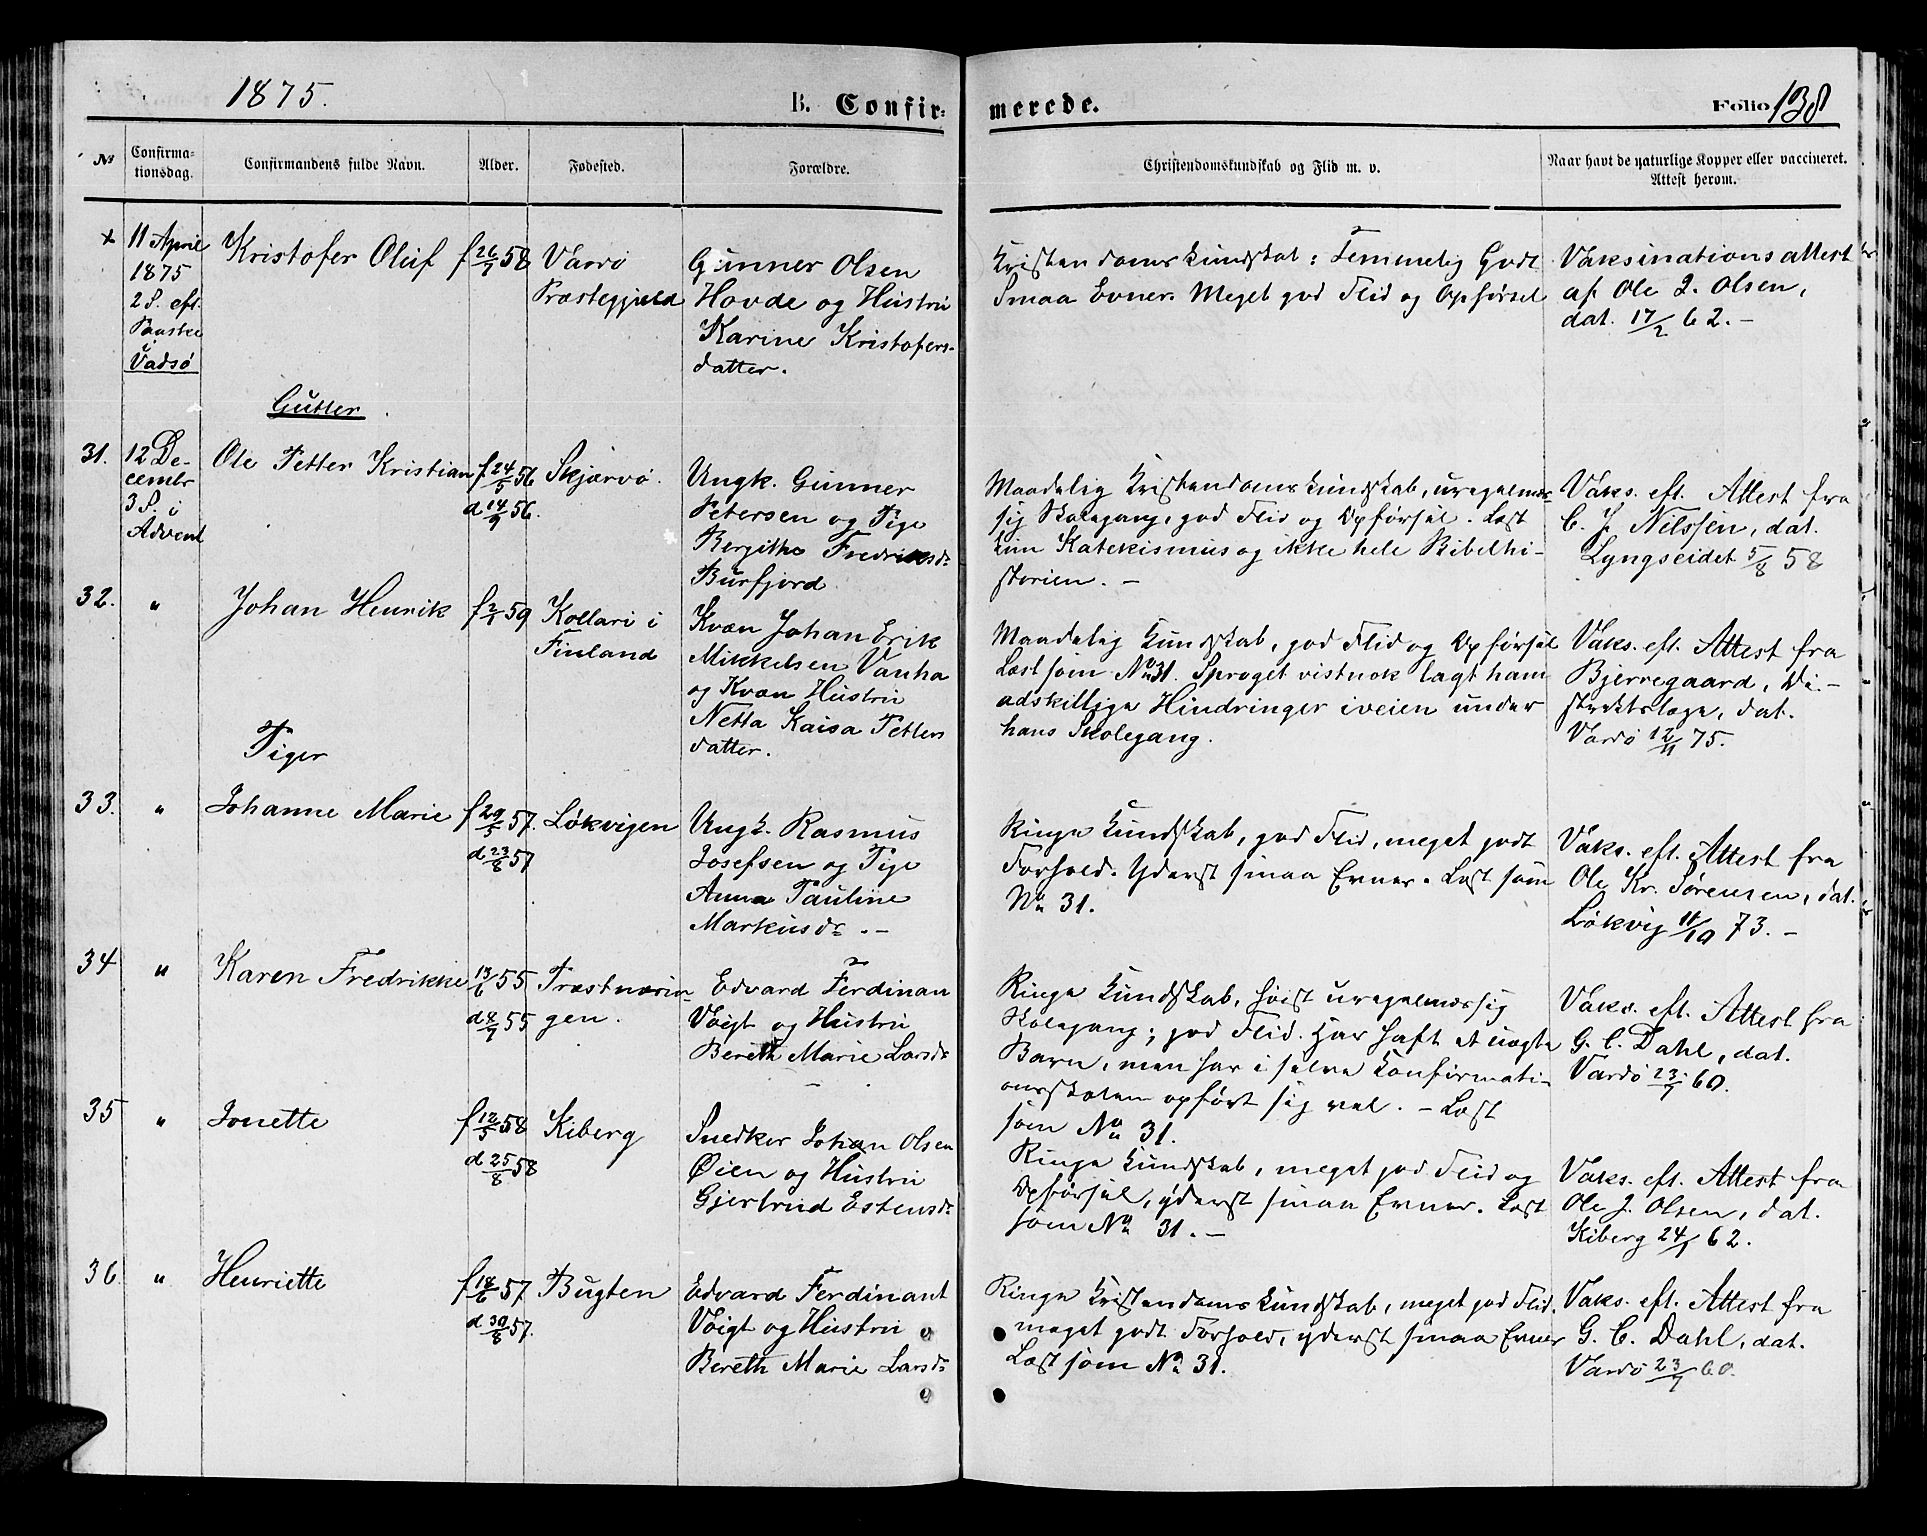 1875.
B. Confir-
merede.
Folio 138
No
Confirma-
tionsdag.
Confirmandens fulde Navn.
Alder.
Fødested.
Forældre.
Christendomskundskab og Flid m. v.
Naar havt de naturlige Kopper eller vaccineret.
Attest herom.
+
11 April
1875
2 S. eft.
Paaske
Vadsö
Kristofer Oluf
f 26/7 58
Vardö
Præstegjæld
Gunner Olsen
Hovde og Hustru
Karine Kristofers-
datter.
Kristendomskundskab: Temmelig Godt
Smaa Evner. Meget god Flid og Opførsel
Vaksinationsattest
af Ole J. Olsen,
dat. 17/2 62. -
Gutter
31.
12 De-
cembr
3 S. i
Advent
Ole Petter Kristian
f 24/5 56
d 14/9 56.
Skjærvö.
Ungk. Gunner
Petersen og Pige
Bergithe Fredriksdr
Burfjord
Maadelig Kristendomskundskab, uregelmæs-
sig Skolegang, god Flid og Opførsel. Læst
kun Katekismus og ikke hele Bibelhi-
storien. -
Vaks. eft. Attest fra
C. J. Nilssen, dat.
Lyngseidet 5/8 58
32.
"
Johan Henrik
f 2/1 59
Kollari i
Finland
Kvæn Johan Erik
Mikkelsen Vanha
og Kvæn Hustru
Netta Kaisa Petters
datter.
Maadelig Kundskab, god Flid og Opførsel
Læst som No 31. Sproget vistnok lagt ham
adskillige Hindringer iveien under
hans Skolegang.
Vaks. eft. Attest fra
Bjerregaard, Di-
striktslæge, dat.
Vardö 12/11 75.
Piger
33.
"
Johanne Marie
f 29/5 57.
d 23/8 57
Løkvigen
Ungk. Rasmus
Josefsen og Pige
Anna Pauline
Markusdr. -
Ringe Kundskab, god Flid, meget godt
Forhold. Yderst smaa Evner. Læst som
No 31.
Vaks. eft. Attest fra
Ole Kr. Sørensen, dat.
Løkvig 11/10 73. -
34
"
Karen Fredrikke
13/6 55
d 8/7 55
Præstnærin-
gen.
Edvard Ferdinan
Voigt og Hustru
Bereth Marie Larsdr
Ringe Kundskab, høist uregelmæssig
Skolegang; god Flid. Har haft et uægte
Barn, men har i selve Konfirmati-
onsskolen opført sig vel. - Læst
som No 31.
Vaks. eft. Attest fra
G. C. Dahl, dat.
Vardö 23/7 60.
35
"
Jonette
f 12/5 58
d 25/8 58
Kiberg
Snedker Johan Olsen
Øien og Hustru
Gjertrud Estensdr
Ringe Kundskab, meget god Flid og
Opførsel, yderst smaa Evner. Læst
som No 31. -
Vaks. eft. Attest fra
Ole J. Olsen, dat.
Kiberg 24/1 62.
36
"
Henriette
f 14/6 57
d 30/8 57.
Bugten
Edvard Ferdinant
Voigt og Hustru
Bereth Marie Larsdr
Ringe Kristendomskundskab, meget god Flid,
meget godt Forhold, yderst smaa Evner
Læst som No 31.
Vaks. eft. Attest fra
G. C. Dahl, dat.
Vardö 23/7 60.